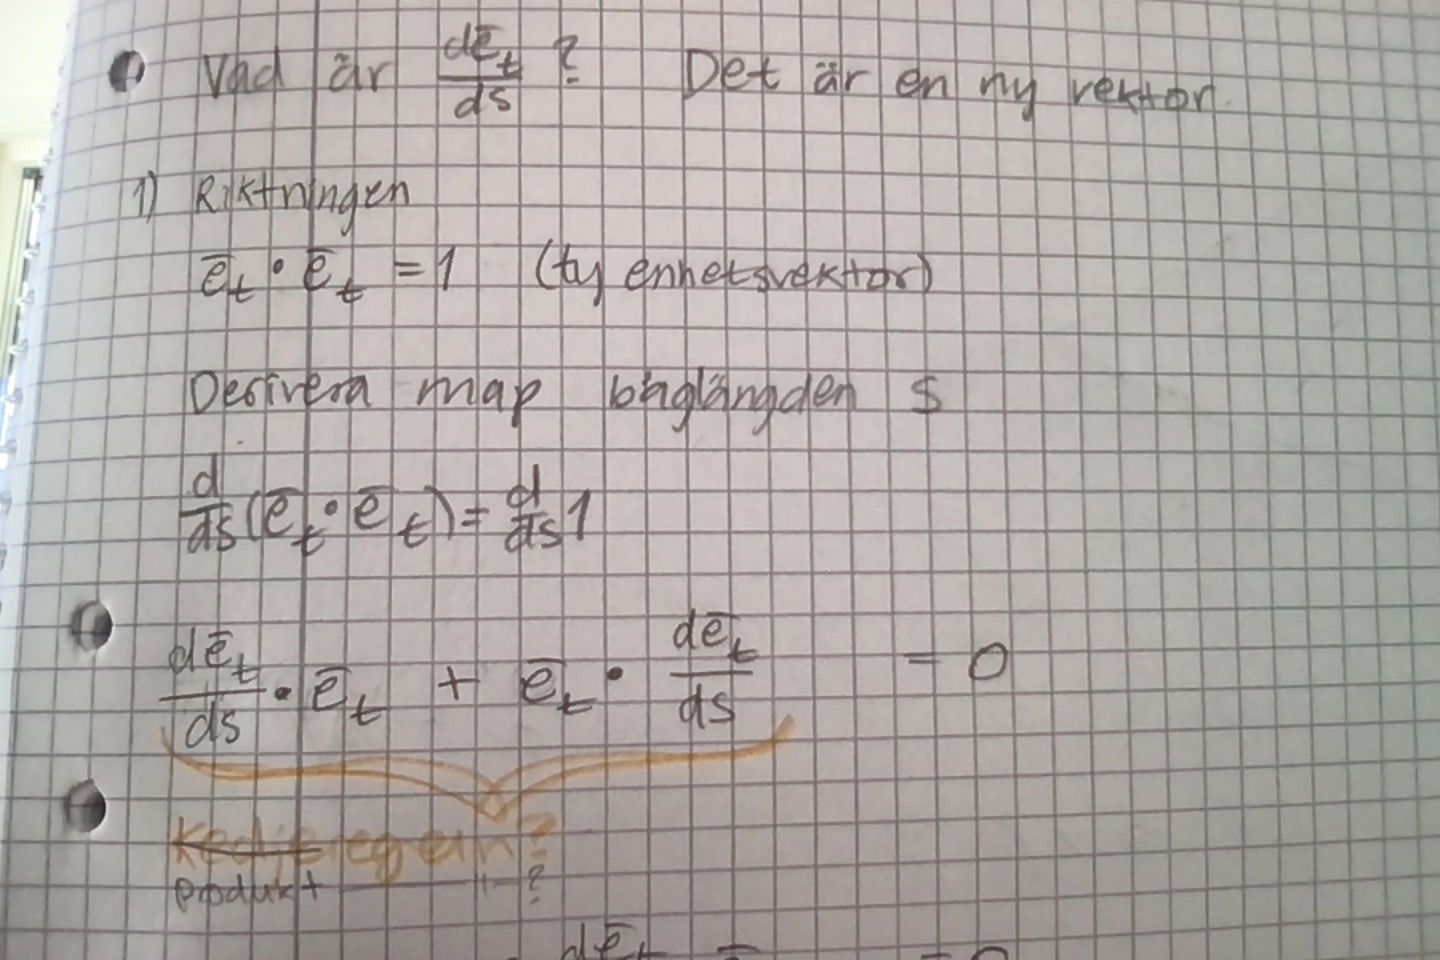 Vad är dē_t/ds ? Det är en ny vektor.
1) Riktningen
ē_t • ē_t = 1 (ty enhetsvektor)
Derivera map båglängden s
d/ds (ē_t • ē_t) = d/ds 1
dē_t/ds • ē_t + ē_t • dē_t/ds = 0
Kedjeregeln?
Produkt - " - ?